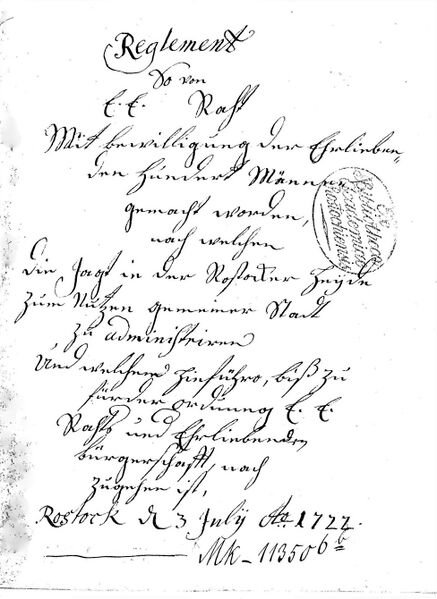 Reglement
So von
E. E. Raht
Mit bewilligung der Ehrlieben-
den Hundert Männer
gemacht worden,
nach welchen
die Jagt in der Rostocker Heyde
zum Nutzen gemeiner Stadt
zu administriren
Und welchem hinführo, biß zu
fürder ordnung E. E.
Rahts und Ehrliebenden
bürgerschafft, nach
zugehen ist,
Rostock d 3 July Ao 1722.
Mk-11350 6 b
Ex
Bibliotheca
Academica
Rostochiensi